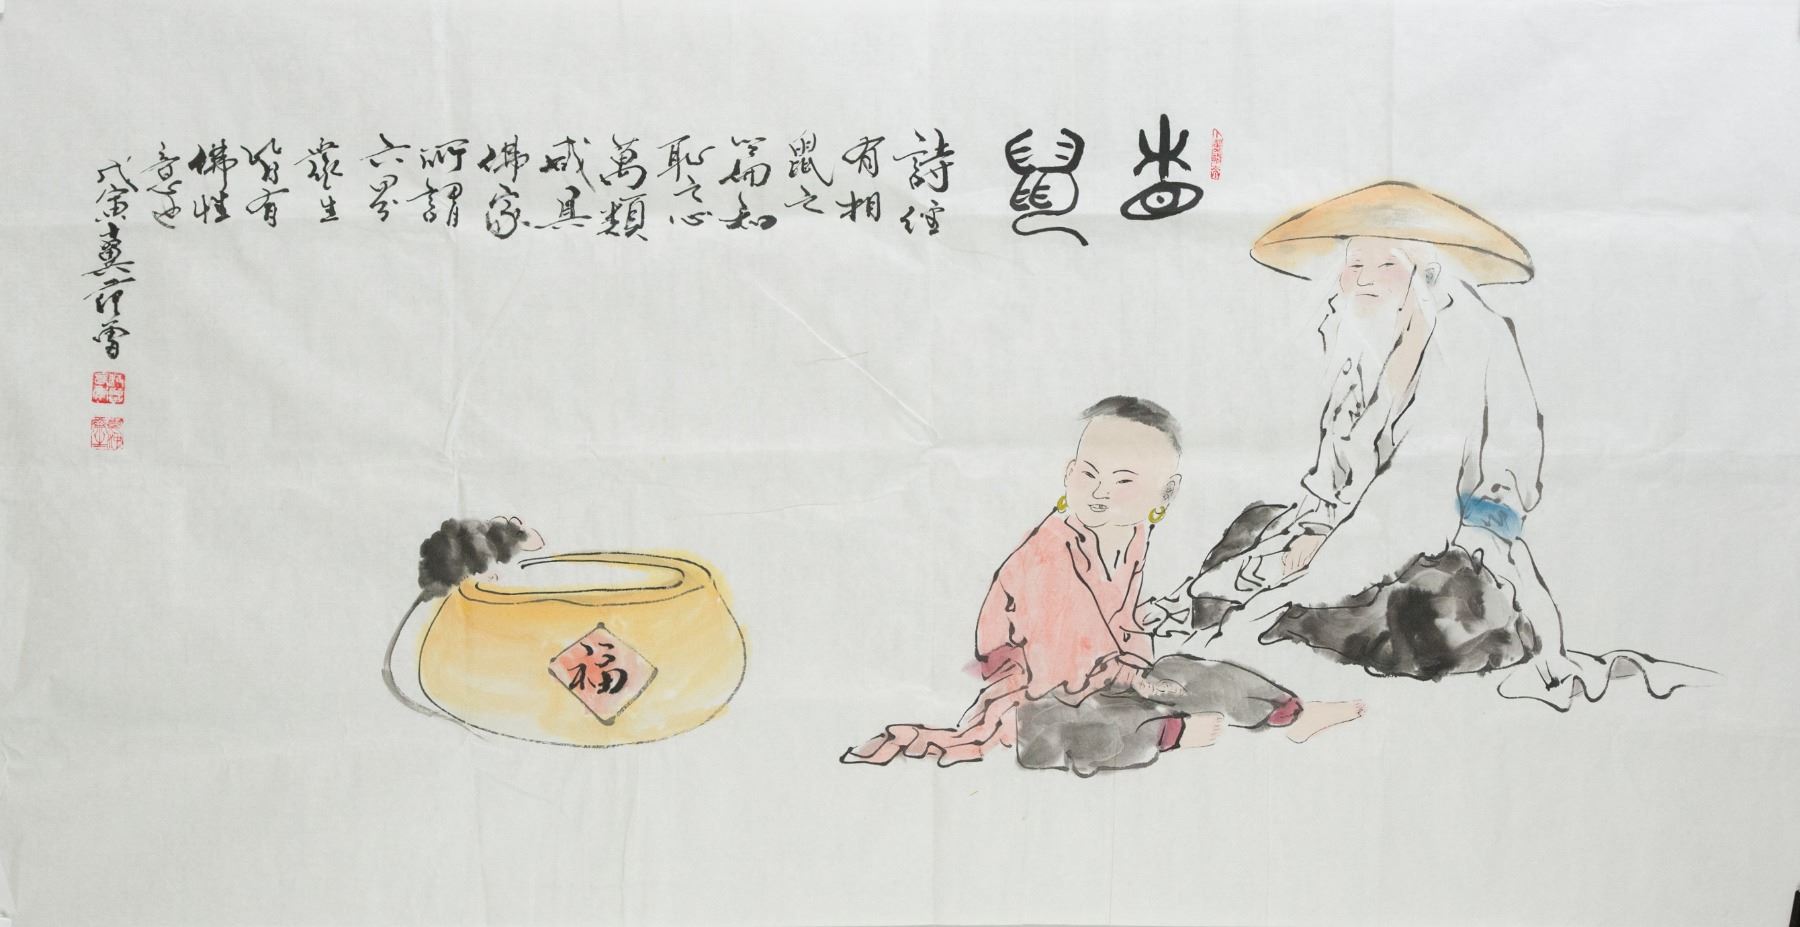 相
鼠
詩經
有相
鼠之
篇知
恥之心
萬類
咸具
佛家
所謂
六界
衆生
皆有
佛性
意也
戊寅十翼范曾
福